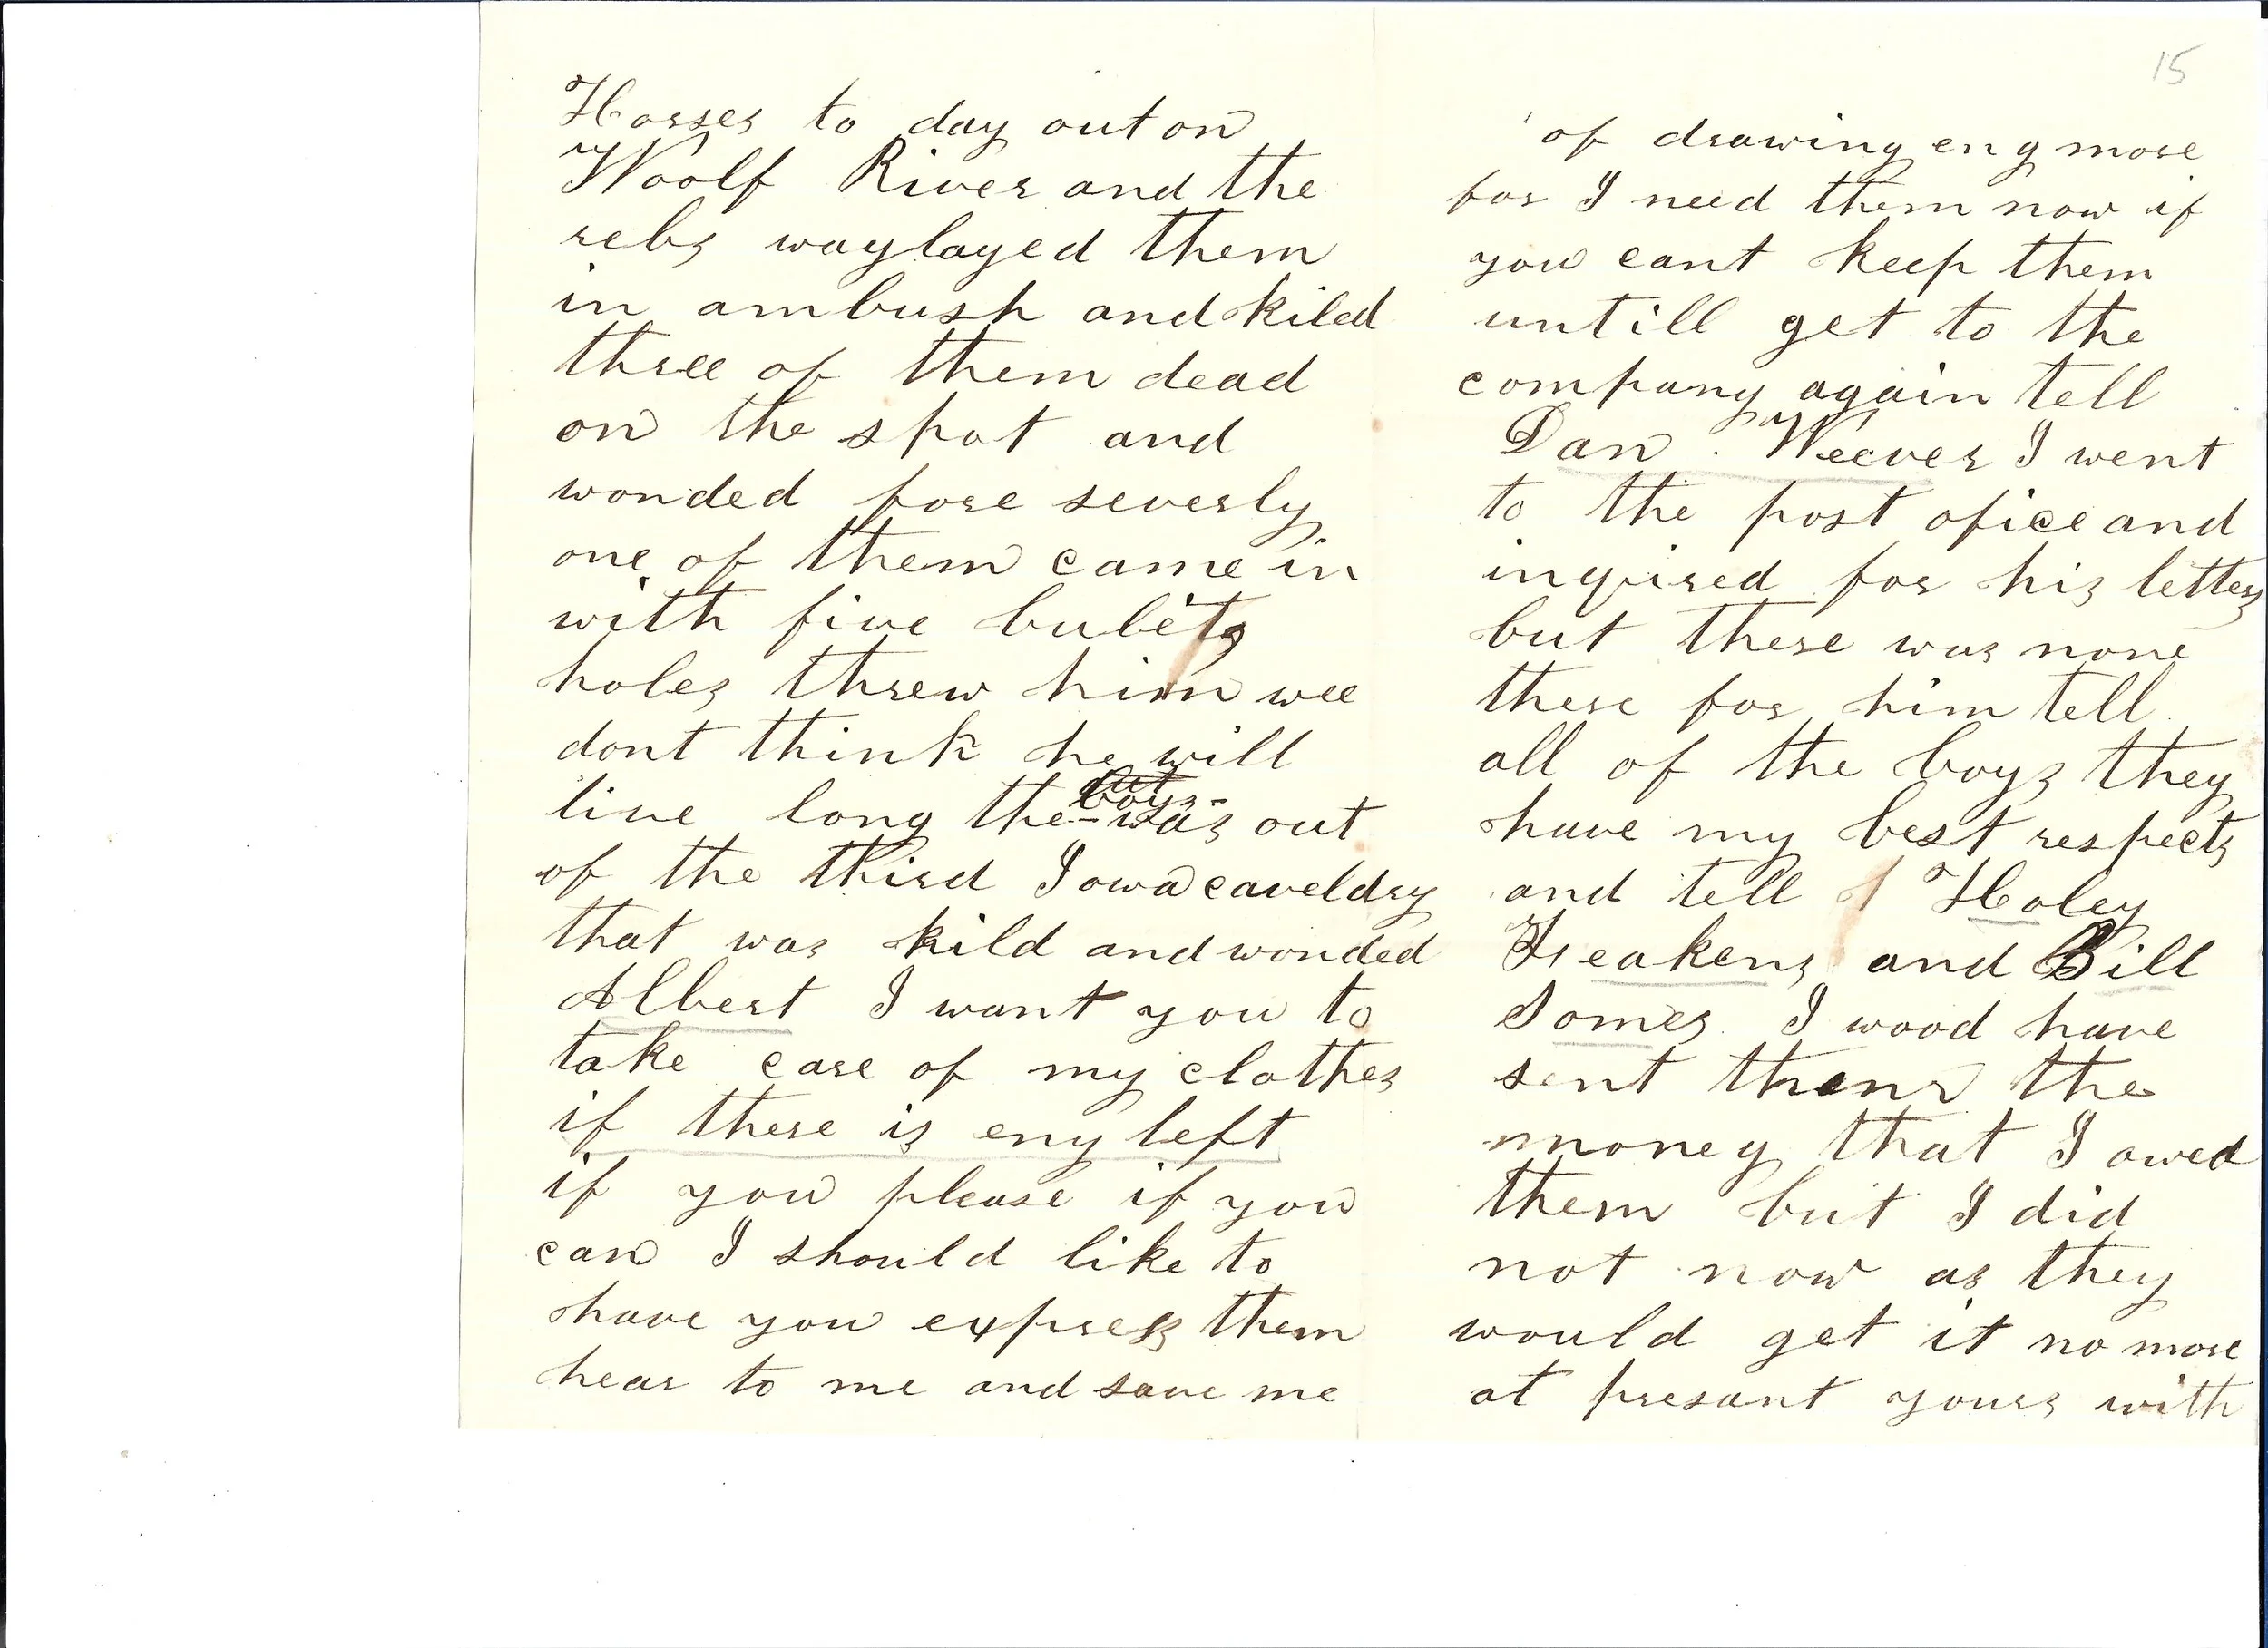 Horses to day out on
Woolf River and the
rebs waylayed them
in ambush and kiled
three of them dead
on the spot and
wonded fore severly
one of them came in
with five bulets
holes threw him wee
dont think he will
boys
live long the was out
of the third Iowa caveldry
that was kild and wonded
Albert I want you to
take care of my clothes
if there is eny left
if you please if you
can I should like to
have you express them
hear to me and save me
15
of drawing eny more
for I need them now if
you cant keep them
untill get to the
company again tell
Dan. Weever I went
to the post ofice and
inquired for his letters
but there was none
there for him tell
all of the boys they
have my best respects
and tell Holey
and Bill
Somes I wood have
sent them the
money that I owed
them but I did
not now as they
would get it no more
at presant yours with